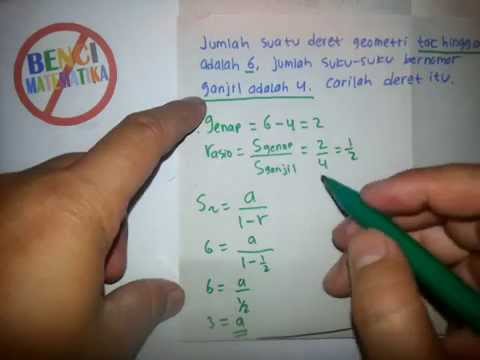 BENCI
MATEMATIKA
Jumlah suatu deret geometri tac hingga
adalah 6, jumlah suku-suku bernomor
ganjil adalah 4. Carilah deret itu.
genap = 6 - 4 = 2
rasio = Sgenap / Sganjil = 2/4 = 1/2
S~ = a / 1 - r
6 = a / 1 - 1/2
6 = a / 1/2
3 = a